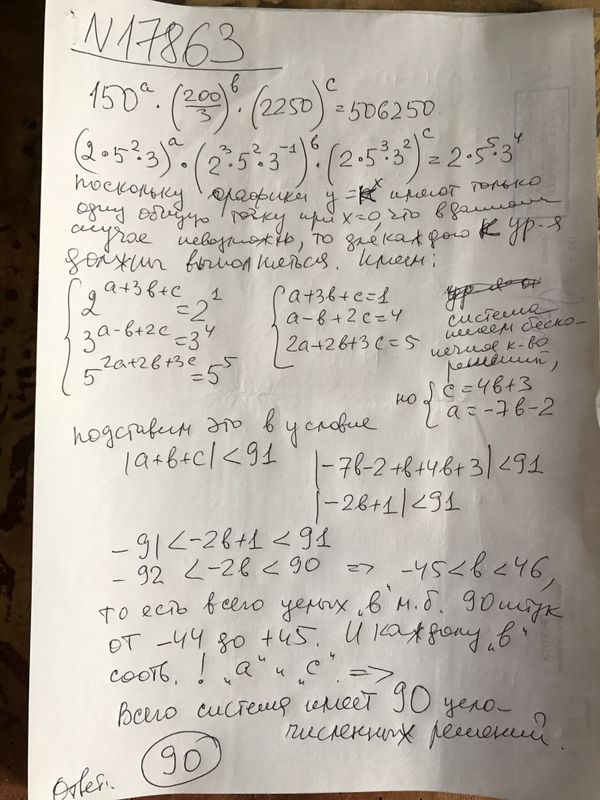 N17863
150ᵃ · (200/3)ᵇ · (2250)ᶜ = 506250
(2·5²·3)ᵃ · (2³·5²·3⁻¹)ᵇ · (2·5³·3²)ᶜ = 2·5⁵·3⁴
поскольку графики y = kˣ имеют только
одну общую точку при x=0, что в данном
случае невозможно, то для каждого k ур-я
должны выполняться. Имеем:
{ 2ᵃ⁺³ᵇ⁺ᶜ = 2¹
3ᵃ⁻ᵇ⁺²ᶜ = 3⁴
5²ᵃ⁺²ᵇ⁺³ᶜ = 5⁵
{ a+3b+c=1
a-b+2c=4
2a+2b+3c=5
система
имеет беско-
нечное к-во
решений,
но { c=4b+3
a=-7b-2
подставим это в условие
|a+b+c|<91
|-7b-2+b+4b+3|<91
|-2b+1|<91
-91<-2b+1<91
-92<-2b<90 => -45<b<46,
то есть всего целых "b" м.б. 90 штук
от -44 до +45. И каждому "b"
соотв. ! "a" и "c". =>
Всего система имеет 90 цело-
численных решений.
Ответ: 90